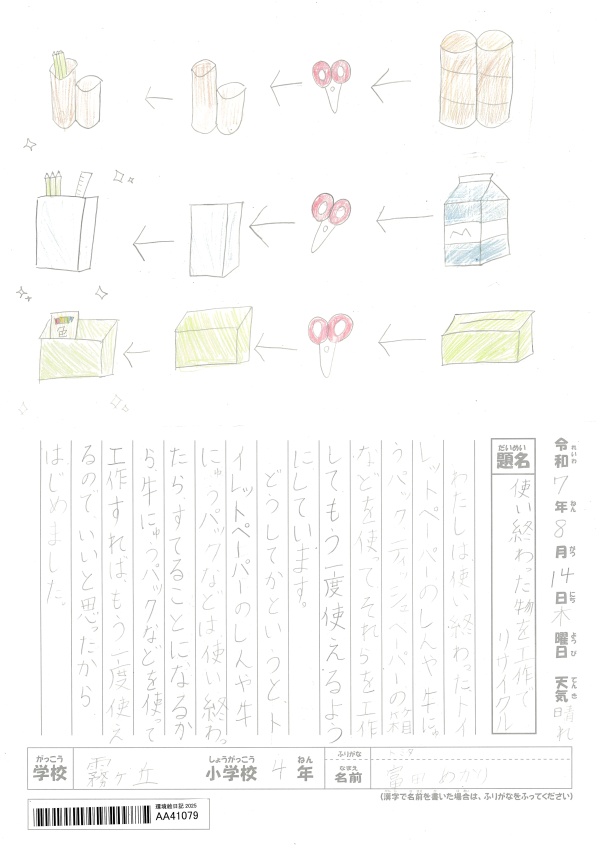 色
令和7年8月14日木曜日 天気晴れ
れいわ ねん がつ にち ようび てんき
だいめい
題名
使い終わった物を工作で
リサイクル
わたしは、使い終わったトイ
レットペーパーのしんや牛にゅ
うパック、ティッシュペーパーの箱
などを使ってそれらを工作
してもう一度使えるよう
にしています。
どうしてかというと、ト
イレットペーパーのしんや牛
にゅうパックなどは使い終わっ
たら、すてることになるか
ら、牛にゅうパックなどを使って
工作すればもう一度使え
るので、いいと思ったから、
はじめました。
がっこう
学校
霧ヶ丘
しょうがっこう
小学校
4
ねん
年
ふりがな
なまえ
名前
富田 わかり
(漢字で名前を書いた場合は、ふりがなをふってください)
環境絵日記 2025
AA41079